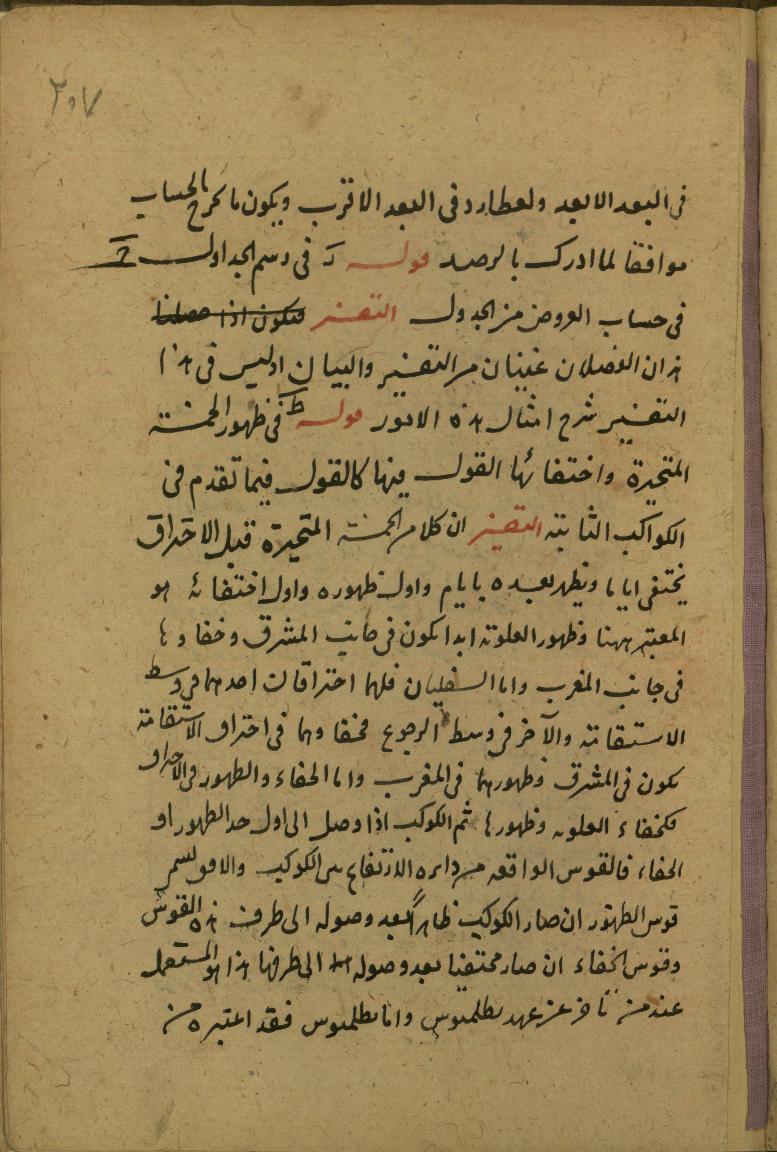 ٣٠٧
فى البعد الابعد ولعطارد فى البعد الاقرب ويكون ما يخرج بالحساب
موافقا لما ادرك بالرصد قوله ز فى رسم الجداول ح
فى حساب العروض من الجدول التفسير فيكون اذا حصلنا
هذان الفصلان غنيان من التفسير والبيان اذ ليس فى هذا
التفسير شرح امثال هذه الامور قوله ط فى ظهور الخمسة
المتحيرة واختفائها القول فيها كالقول فيما تقدم فى
الكواكب الثابتة التفسير ان كلا من الخمسة المتحيرة قبل الاحتراق
يختفى اياما ويظهر بعده بايام واول ظهوره واول اختفائه هو
المعتبر ههنا وظهور العلوية ابدا يكون فى جانب المشرق وخفاوها
فى جانب المغرب واما السفليان فلهما احتراقان احدهما فى وسط
الاستقامة والآخر فى وسط الرجوع فخفاوهما فى احتراق الاستقامة
يكون فى المشرق وظهورهما فى المغرب واما الخفاء والظهور فى الاحتراق
فكخفاء العلوية وظهورها ثم الكوكب اذا وصل الى اول حد الظهور او
الخفاء فالقوس الواقعة من دايرة الارتفاع بين الكوكب والافق تسمى
قوس الظهور ان صار الكوكب ظاهرا بعد وصوله الى طرف هذه القوس
وقوس الخفاء ان صار مختفيا بعد وصوله الى طرفها هذا هو المستعمل
عند من تأخر عن عهد بطلميوس واما بطلميوس فقد اعتبره من